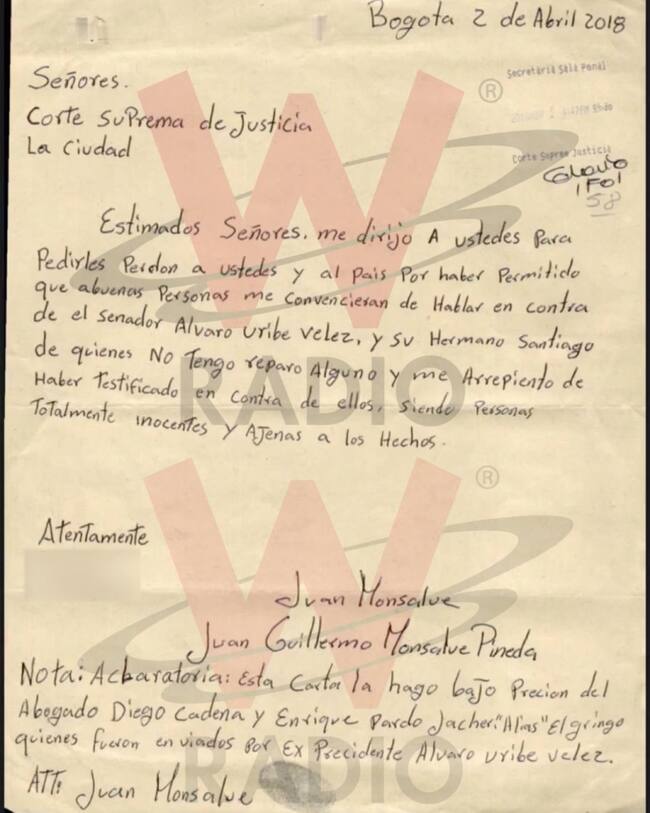 Bogota 2 de Abril 2018
Secretaria Sala Penal
Señores.
Corte Suprema de Justicia
La Ciudad
Corte Suprema Justicia
1 FOl
58
Estimados Señores. me dirijo A ustedes Para
Pedirles Perdon a ustedes y al pais Por haber Permitido
que abuenas Personas me Convencieran de Hablar en contra
de el senador Alvaro Uribe Velez, y su Hermano Santiago
de quienes No Tengo reparo Alguno y me Arrepiento de
Haber Testificado en Contra de ellos, siendo Personas
Totalmente inocentes y AJenas a los Hechos.
W RADIO ®
Atentamente
Juan Monsalve
Juan Guillermo Monsalve Pineda
Nota: Acbaratoria: Esta Carta la hago bajo Precion del
Abogado Diego Cadena y Enrique Pardo Jacher. "Alias" El gringo
quienes fueron enviados por Ex Precidente Alvaro uribe velez.
ATT: Juan Monsalve
W RADIO ®